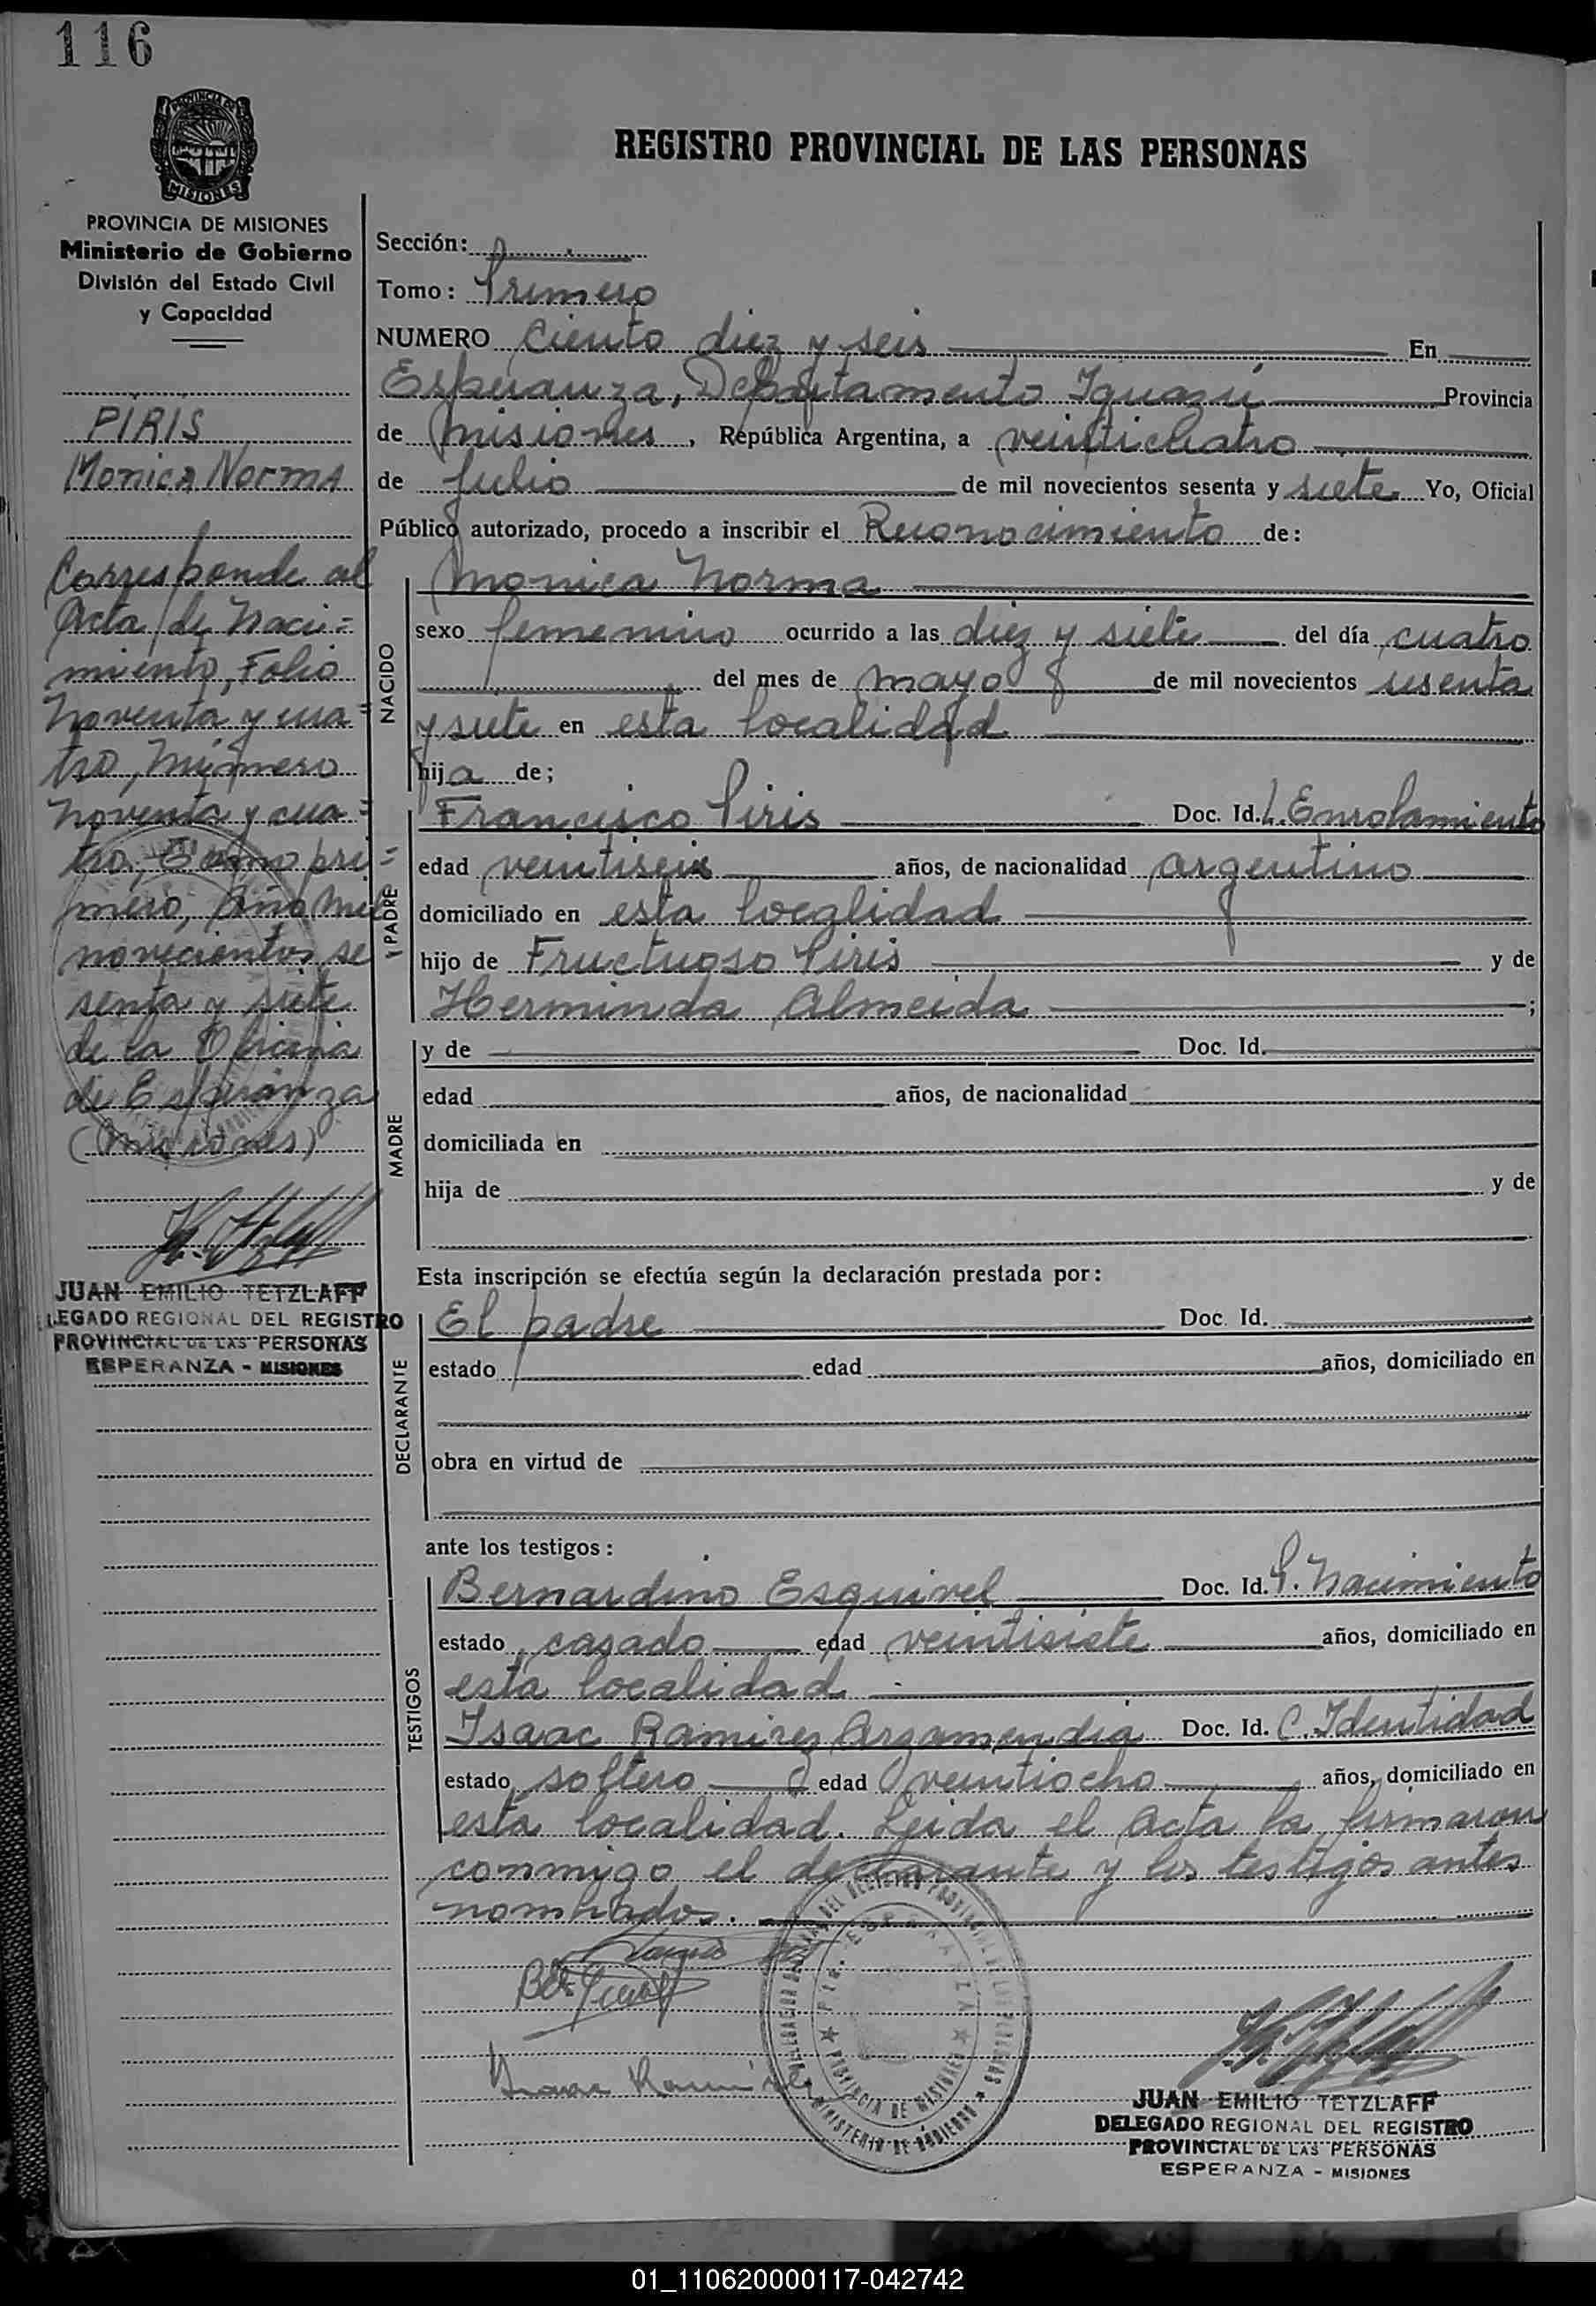 116
PROVINCIA DE
MISIONES
REGISTRO PROVINCIAL DE LAS PERSONAS
PROVINCIA DE MISIONES
Ministerio de Gobierno
División del Estado Civil
y Capacidad
PIRIS
Monica Norma
Corresponde al
Acta de Naci=
miento, Folio
Noventa y cua=
tro, Número
noventa y cua=
tro, Tomo pri=
mero, Año mil
novecientos se
senta y siete
de la Oficina
de Esperanza
(Misiones)
JUAN EMILIO TETZLAFF
LEGADO REGIONAL DEL REGISTRO
PROVINCIAL DE LAS PERSONAS
ESPERANZA - MISIONES
Sección:
Tomo: Primero
NUMERO Ciento diez y seis En
Esperanza, Departamento Iguazú Provincia
de Misiones, República Argentina, a veinticuatro
de Julio de mil novecientos sesenta y siete Yo, Oficial
Público autorizado, procedo a inscribir el Reconocimiento de:
NACIDO
Monica Norma
sexo femenino ocurrido a las diez y siete del día cuatro
del mes de mayo de mil novecientos sesenta
y siete en esta localidad
hija de;
Y PADRE
Francisco Piris Doc. Id. L. Enrolamiento
edad veintiseis años, de nacionalidad argentino
domiciliado en esta localidad
hijo de Fructuoso Piris y de
Herminda Almeida ;
MADRE
y de Doc. Id.
edad años, de nacionalidad
domiciliada en
hija de y de
Esta inscripción se efectúa según la declaración prestada por:
DECLARANTE
El padre Doc. Id.
estado edad años, domiciliado en
obra en virtud de
ante los testigos:
TESTIGOS
Bernardino Esquivel Doc. Id. P. Nacimiento
estado casado edad veintisiete años, domiciliado en
esta localidad
Isaac Ramirez Arzamendia Doc. Id. C. Identidad
estado soltero edad veintiocho años, domiciliado en
esta localidad. Leida el Acta la firmaron
conmigo el declarante y los testigos antes
nombrados.
ESPERANZA
PROVINCIA DE MISIONES
MINISTERIO DE GOBIERNO
JUAN EMILIO TETZLAFF
DELEGADO REGIONAL DEL REGISTRO
PROVINCIAL DE LAS PERSONAS
ESPERANZA - MISIONES
01_110620000117-042742